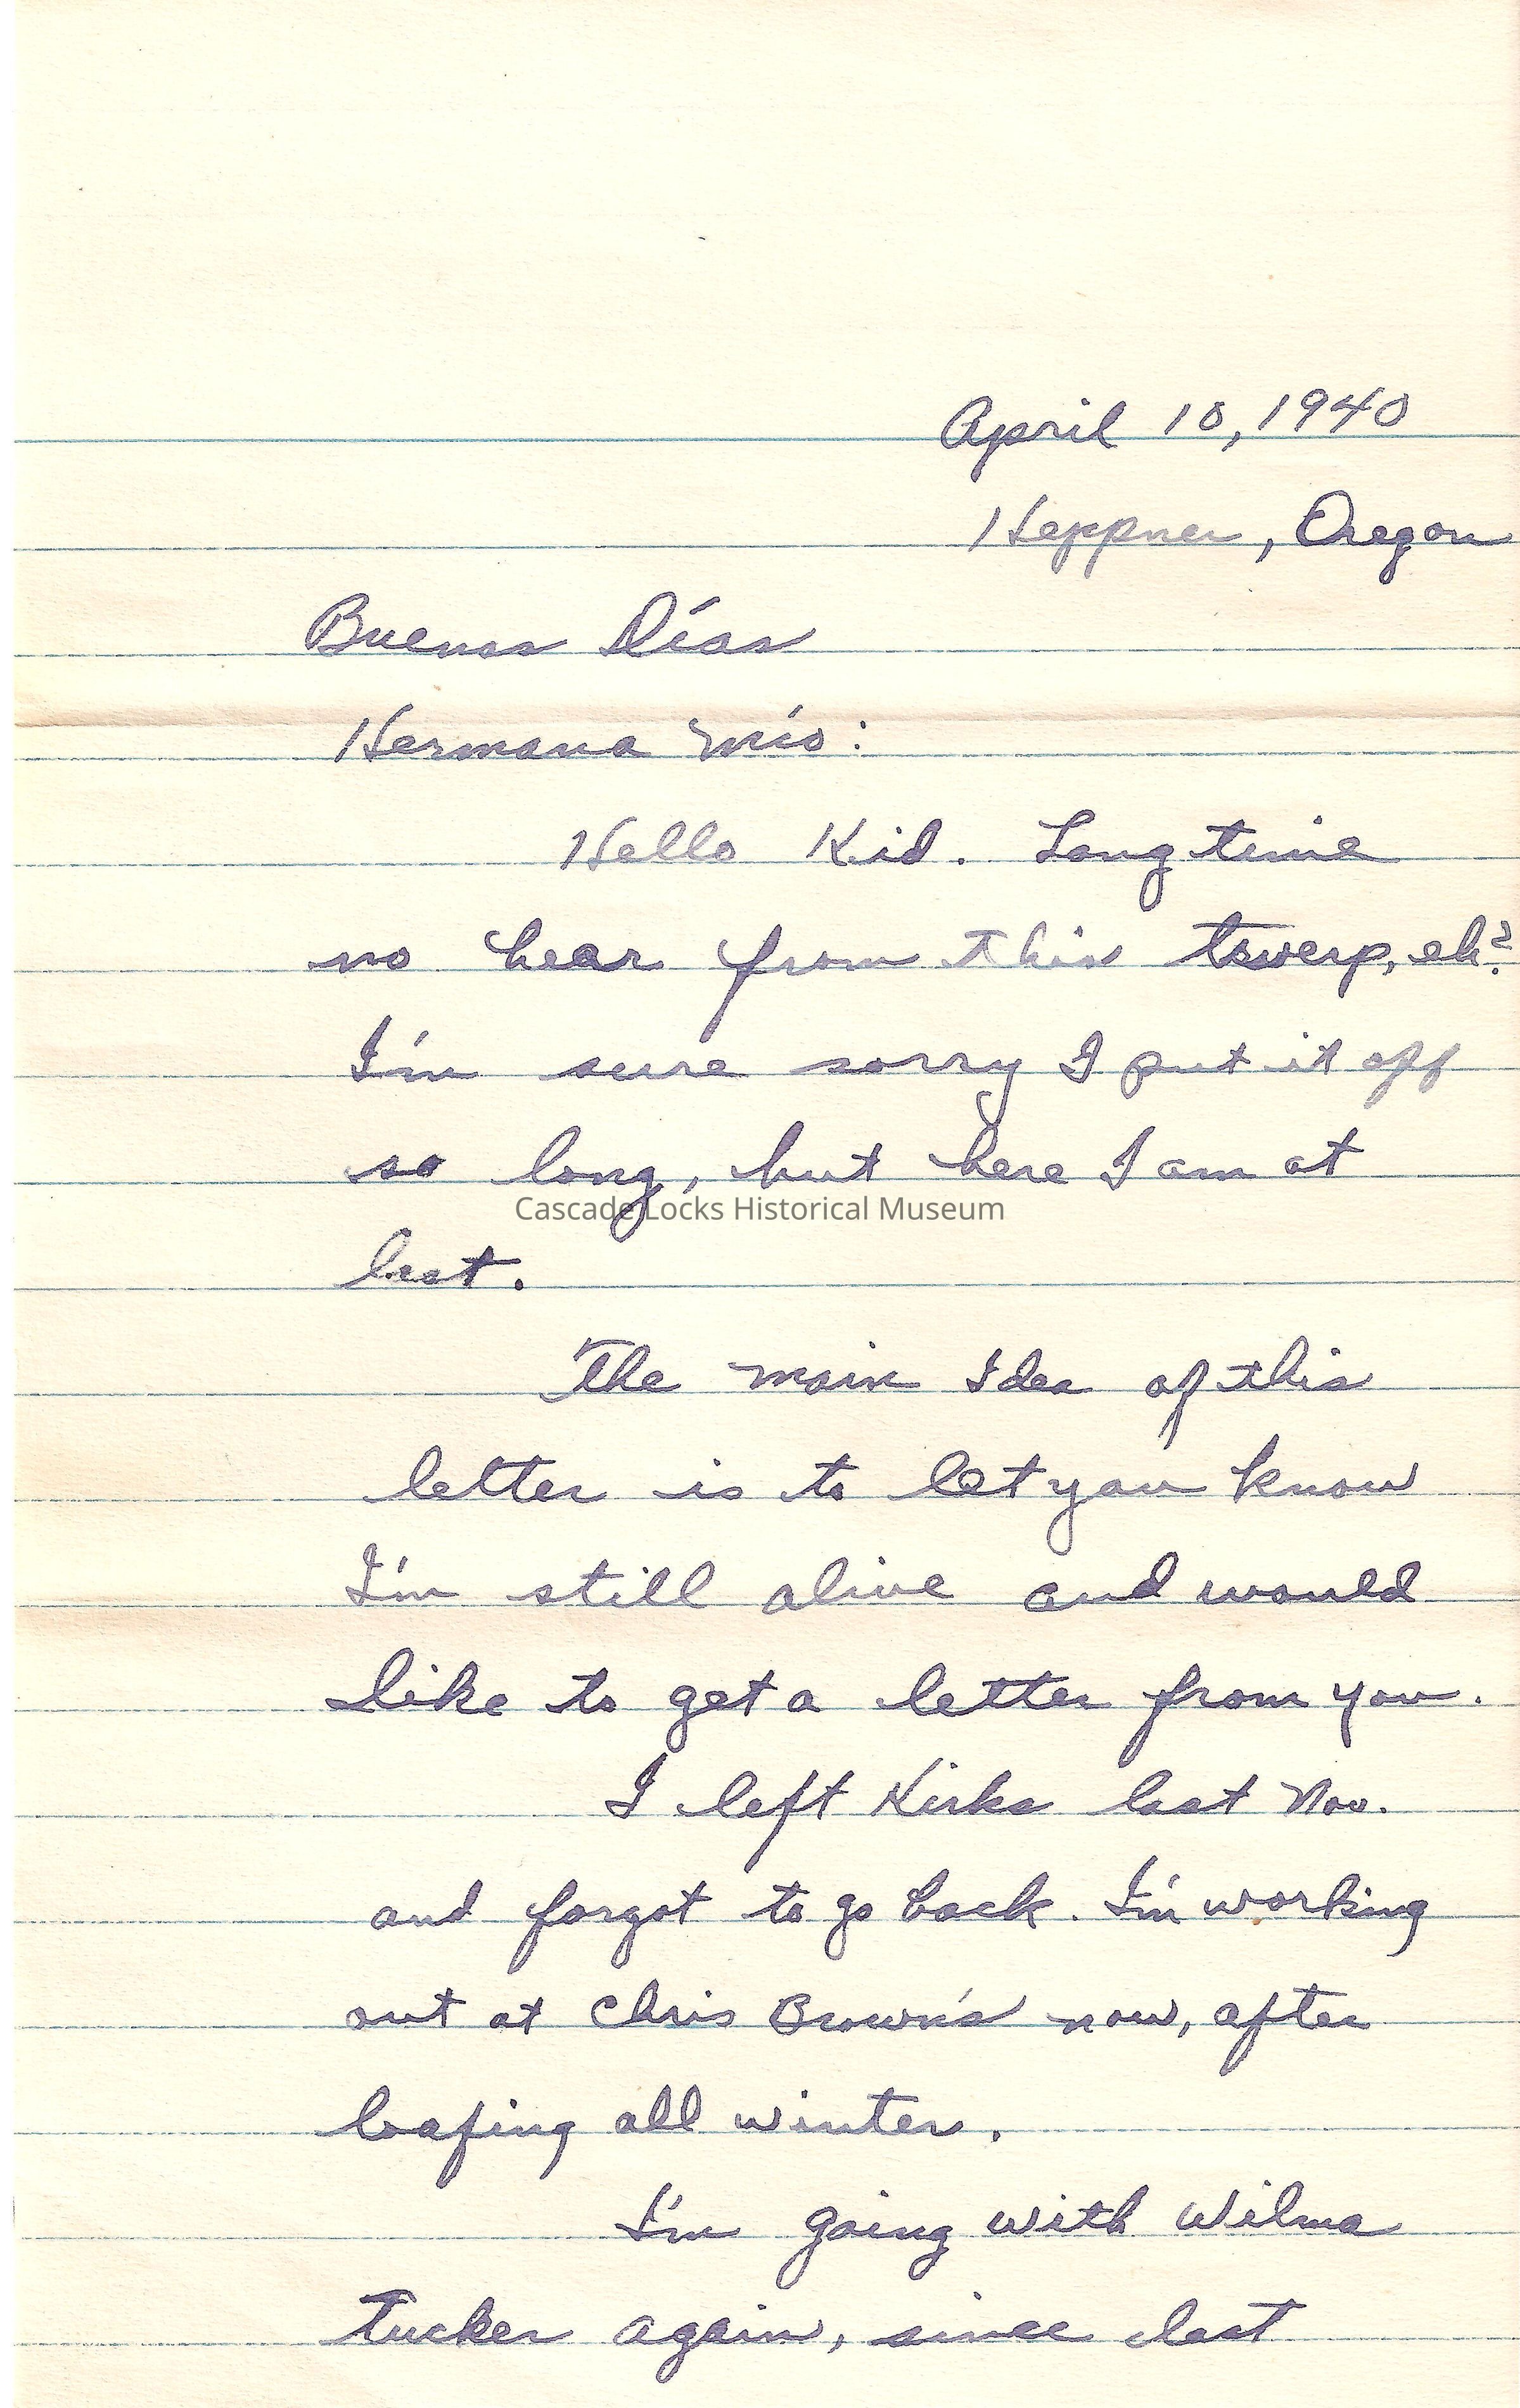 April 10, 1940
Heppner, Oregon
Buenos Días
Hermana mío:
Hello Kid. Long time
no hear from this twerp, eh?
I'm sure sorry I put it off
so long, but here I am at
last.
The main Idea of this
letter is to let you know
I'm still alive and would
like to get a letter from you.
I left Kirks last Nov.
and forgot to go back. I'm working
out at Chris Brown's now, after
loafing all winter.
I'm going with Wilma
Tucker again, since last
Cascade Locks Historical Museum